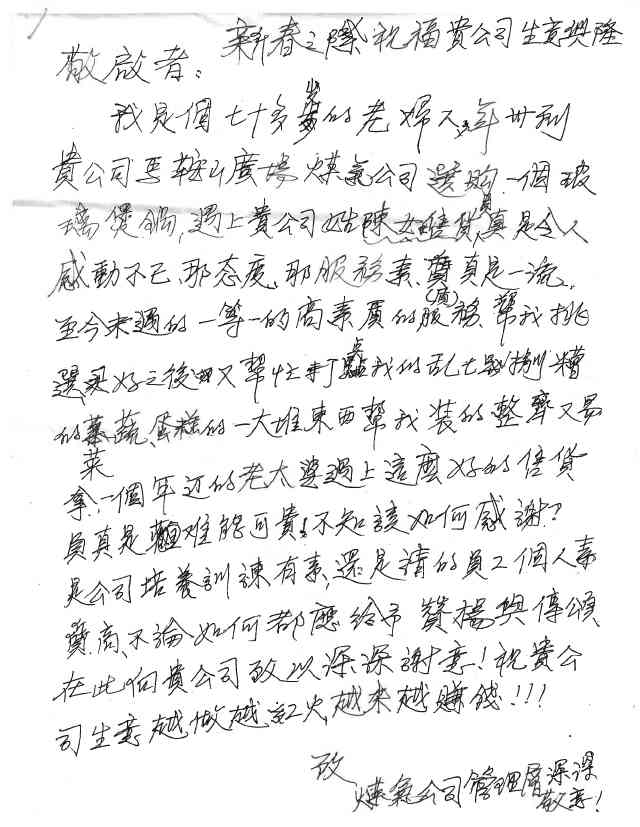 新春之際祝福貴公司生意興隆
敬启者:
我是個七十多岁的老婦人,年卅到
貴公司馬鞍山廣場煤氣公司選購一個玻
璃煲鍋,遇上貴公司姓陳女售貨員,真是令人
感動不已,那态度、那服務素質真是一流。
至今未遇的一等一的高素質的服務(員),幫我挑
選买好之後又幫忙打點我的乱七八糟
的蔬菜、蛋糕的一大堆東西幫我装的整齊又易
拿,一個年迈的老太婆遇上這麼好的售貨
員真是难能可貴!不知該如何感謝?
是公司培養訓諫有素,還是請的員工個人素
質高,不論如何都應給予贊揚與傳頌
在此向貴公司致以深深謝意!祝貴公
司生意越做越紅火,越来越賺錢!!!
致
煤氣公司管理層深深
敬意!